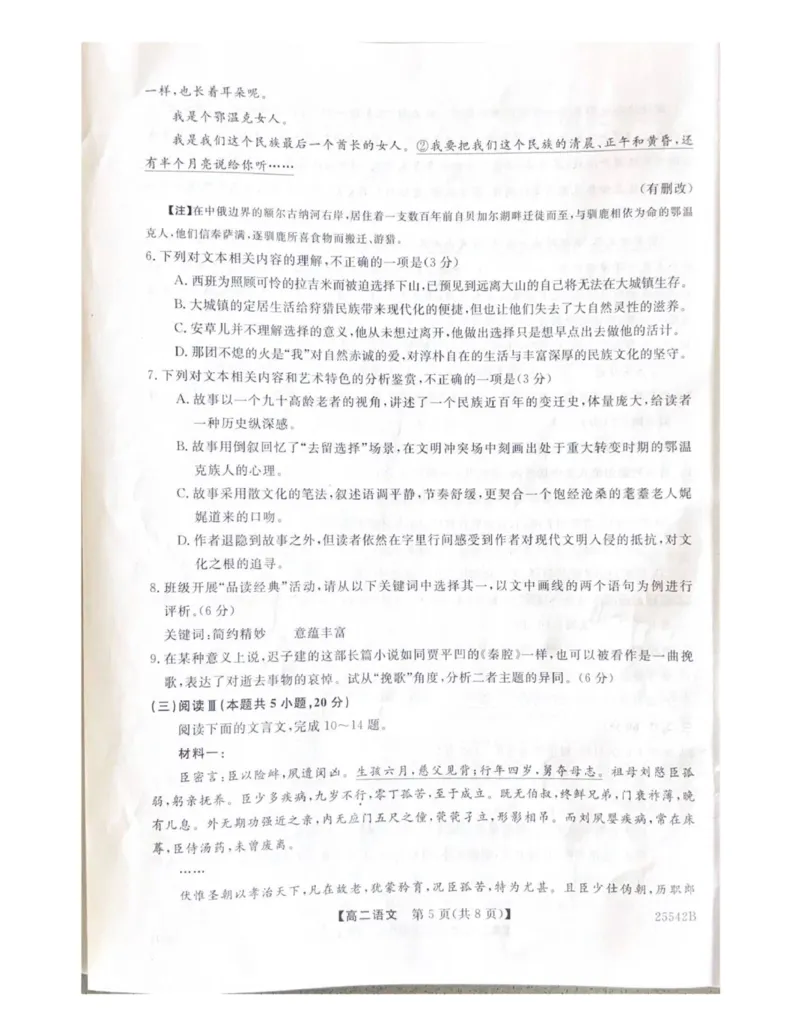 一样,也长着耳朵呢。
我是个鄂温克女人。
我是我们这个民族最后一个酋长的女人。②我要把我们这个民族的清晨、正午和黄昏,还
有半个月亮说给你听……
(有删改)
【注】在中俄边界的额尔古纳河右岸,居住着一支数百年前自贝加尔湖畔迁徙而至,与驯鹿相依为命的鄂温
克人,他们信奉萨满,逐驯鹿所喜食物而搬迁、游猎。
6. 下列对文本相关内容的理解,不正确的一项是(3分)
A. 西班为照顾可怜的拉吉米而被迫选择下山,已预见到远离大山的自己将无法在大城镇生存。
B. 大城镇的定居生活给狩猎民族带来现代化的便捷,但也让他们失去了大自然灵性的滋养。
C. 安草儿并不理解选择的意义,他从未想过离开,他做出选择只是想早点出去做他的活计。
D. 那团不熄的火是“我”对自然赤诚的爱,对淳朴自在的生活与丰富深厚的民族文化的坚守。
7. 下列对文本相关内容和艺术特色的分析鉴赏,不正确的一项是(3分)
A. 故事以一个九十高龄老者的视角,讲述了一个民族近百年的变迁史,体量庞大,给读者
一种历史纵深感。
B. 故事用倒叙回忆了“去留选择”场景,在文明冲突场中刻画出处于重大转变时期的鄂温
克族人的心理。
C. 故事采用散文化的笔法,叙述语调平静,节奏舒缓,更契合一个饱经沧桑的耄耋老人娓
娓道来的口吻。
D. 作者退隐到故事之外,但读者依然在字里行间感受到作者对现代文明入侵的抵抗,对文
化之根的追寻。
8. 班级开展“品读经典”活动,请从以下关键词中选择其一,以文中画线的两个语句为例进行
评析。(6分)
关键词:简约精妙　　意蕴丰富
9. 在某种意义上说,迟子建的这部长篇小说如同贾平凹的《秦腔》一样,也可以被看作是一曲挽
歌,表达了对逝去事物的哀悼。试从“挽歌”角度,分析二者主题的异同。(6分)
(三)阅读Ⅲ(本题共5小题,20分)
阅读下面的文言文,完成10～14题。
材料一:
臣密言:臣以险衅,夙遭闵凶。生孩六月,慈父见背;行年四岁,舅夺母志。祖母刘愍臣孤
弱,躬亲抚养。臣少多疾病,九岁不行,零丁孤苦,至于成立。既无伯叔,终鲜兄弟,门衰祚薄,晚
有儿息。外无期功强近之亲,内无应门五尺之僮,茕茕孑立,形影相吊。而刘夙婴疾病,常在床
蓐,臣侍汤药,未曾废离。
……
伏惟圣朝以孝治天下,凡在故老,犹蒙矜育,况臣孤苦,特为尤甚。且臣少仕伪朝,历职郎
【高二语文　第5页(共8页)】
25542B